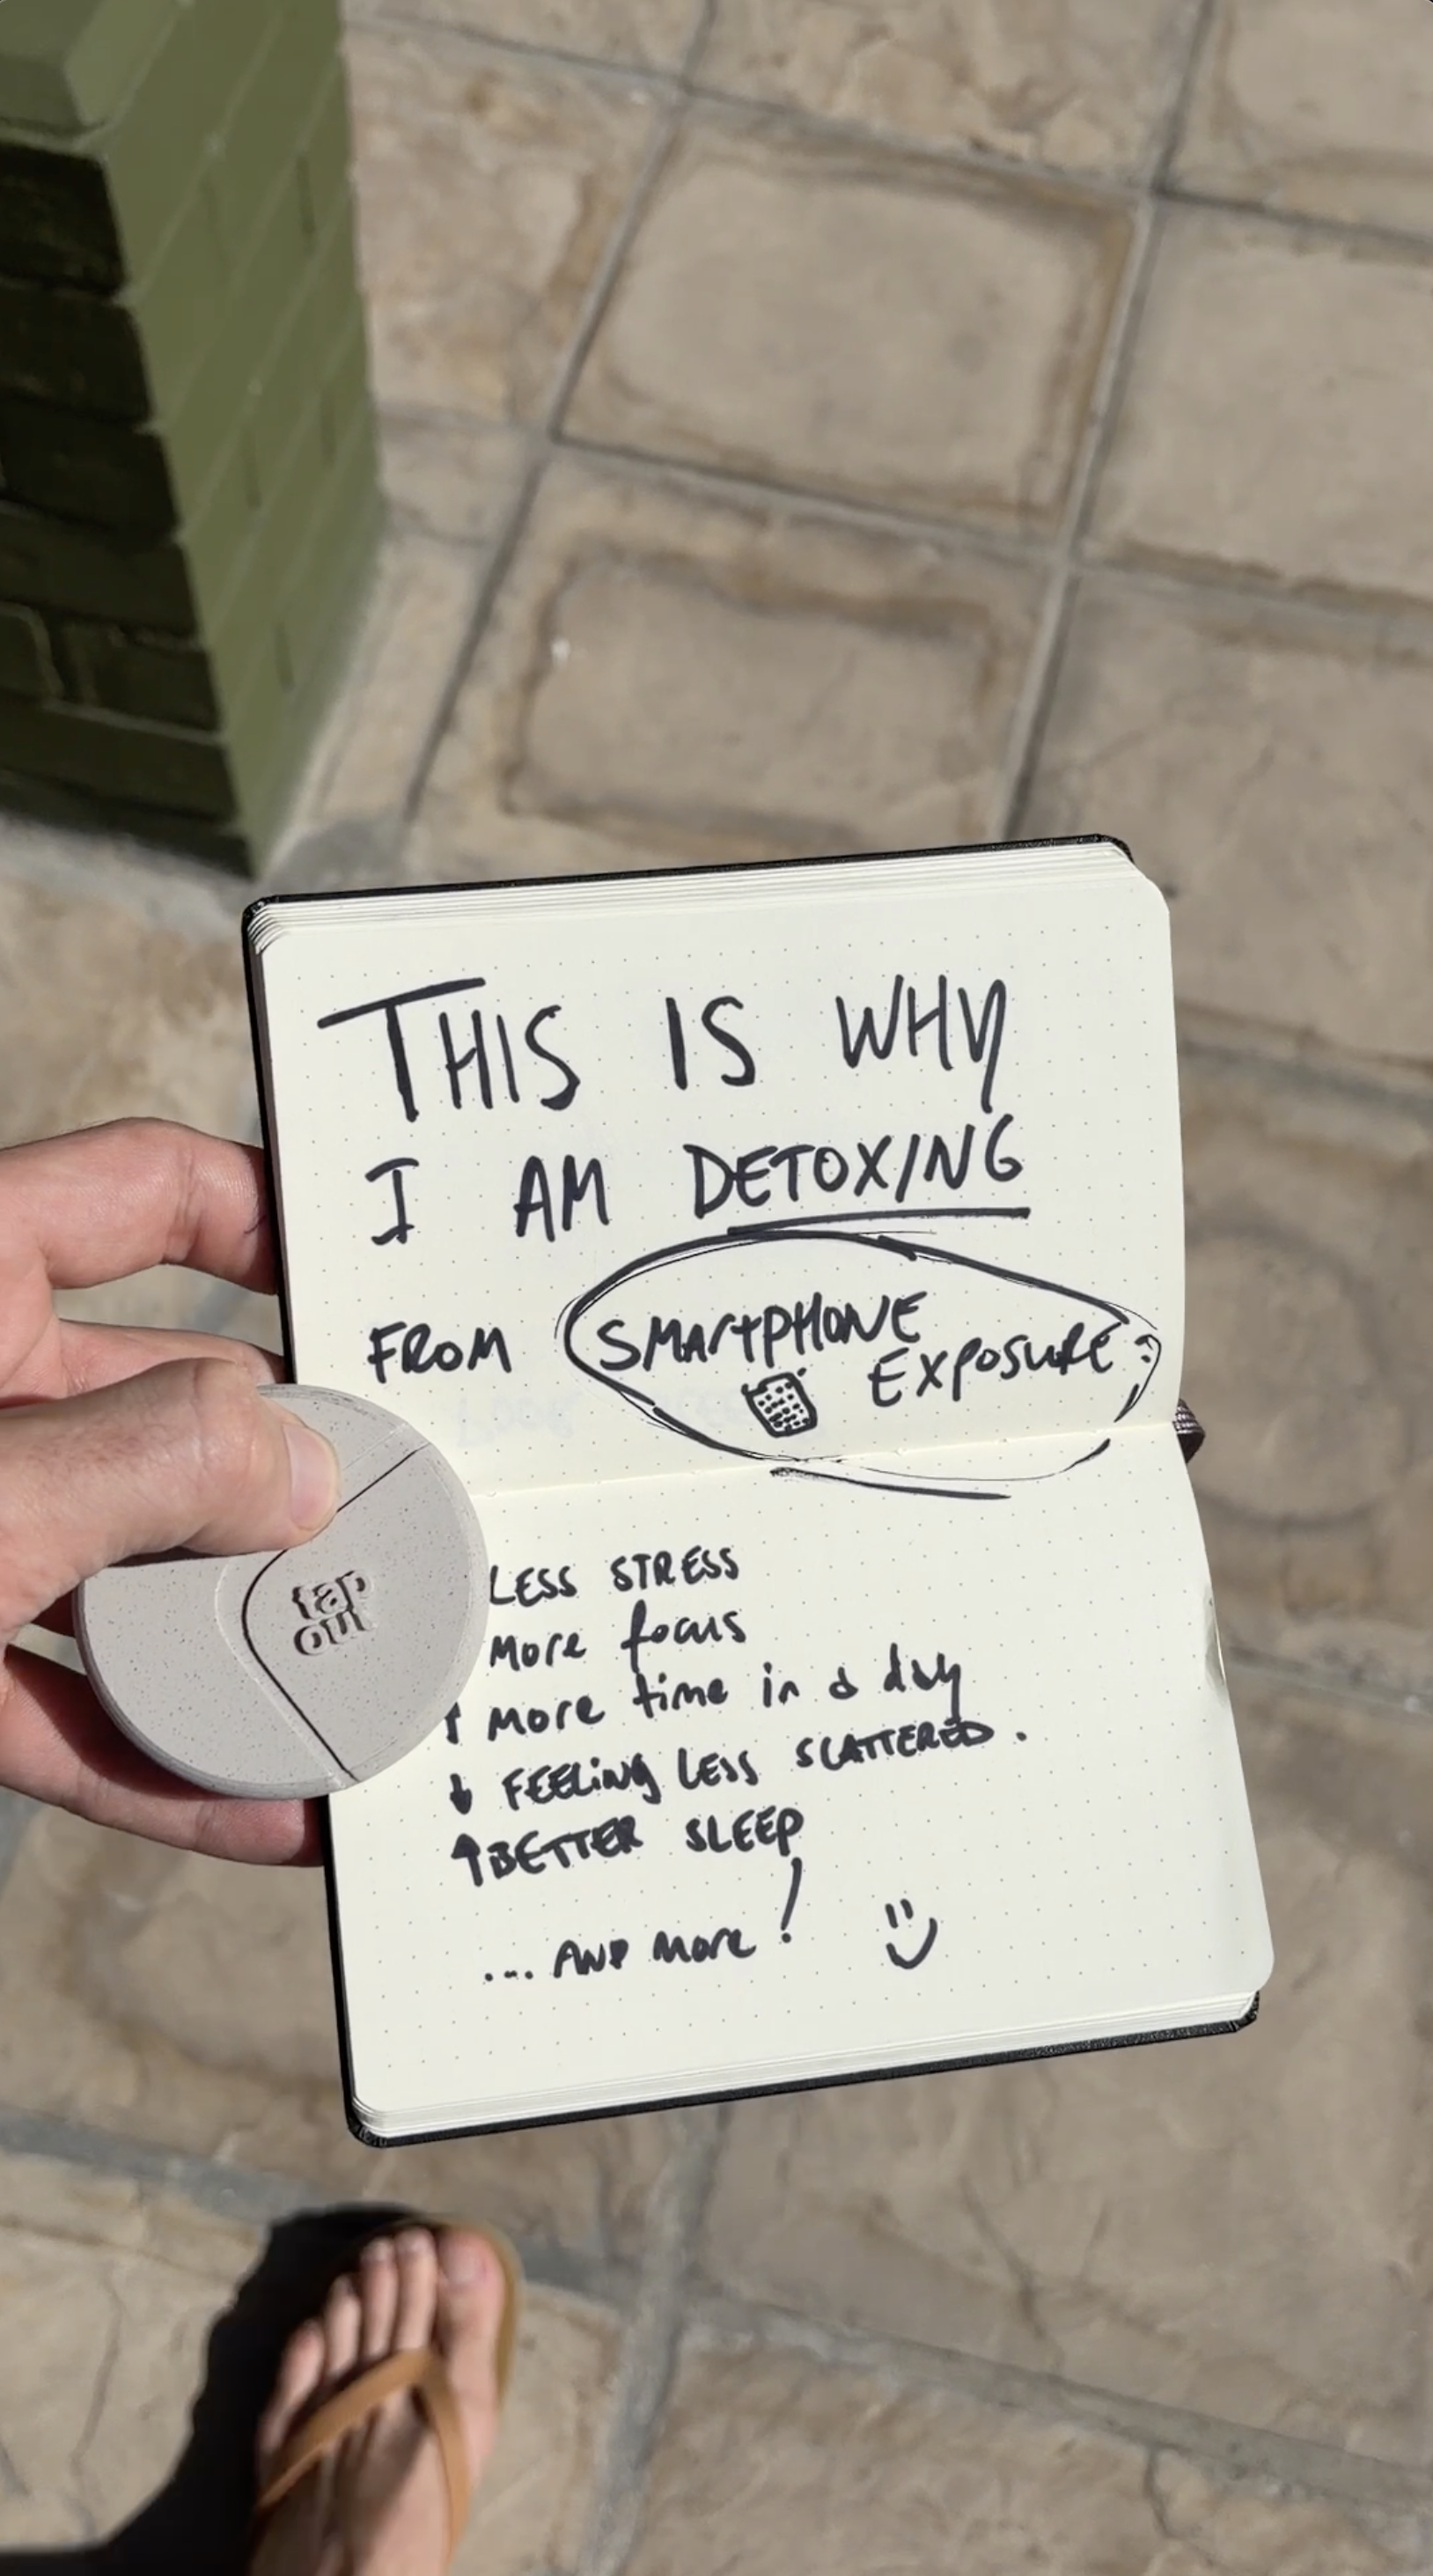 THIS IS WHY
I AM DETOXING
FROM SMARTPHONE
EXPOSURE:
tap
out
LESS STRESS
MORE focus
↑ more time in a day
↓ FEELING LESS SCATTERED.
↑ BETTER SLEEP
... AND MORE!